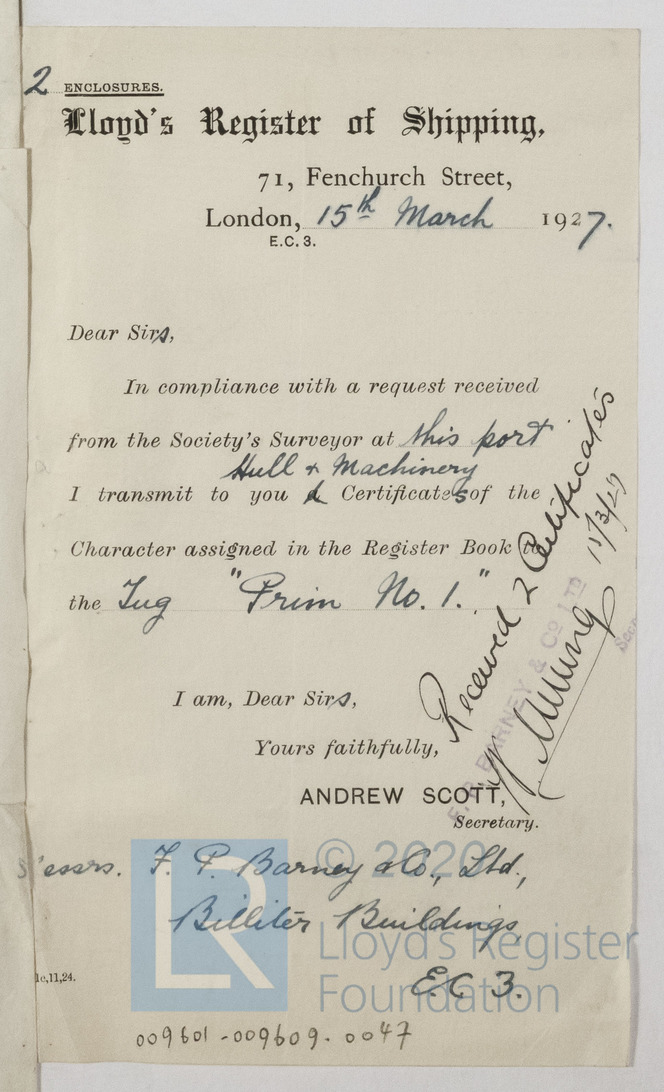 2 ENCLOSURES.
Lloyd's Register of Shipping,
71, Fenchurch Street,
London, 15th March 1927.
E.C. 3.
Dear Sirs,
In compliance with a request received
from the Society's Surveyor at this port
Hull & Machinery
I transmit to you Certificates of the
Character assigned in the Register Book to
the Tug "Prim No. 1."
I am, Dear Sirs,
Yours faithfully,
ANDREW SCOTT,
Secretary.
Received 2 Certificates
BARNEY & CO LTD
Messrs. F. P. Barney & Co., Ltd.,
Billiter Buildings
E.C 3.
1c,11,24.
LR
© 2020
Lloyd's Register
Foundation
009601-009609-0047